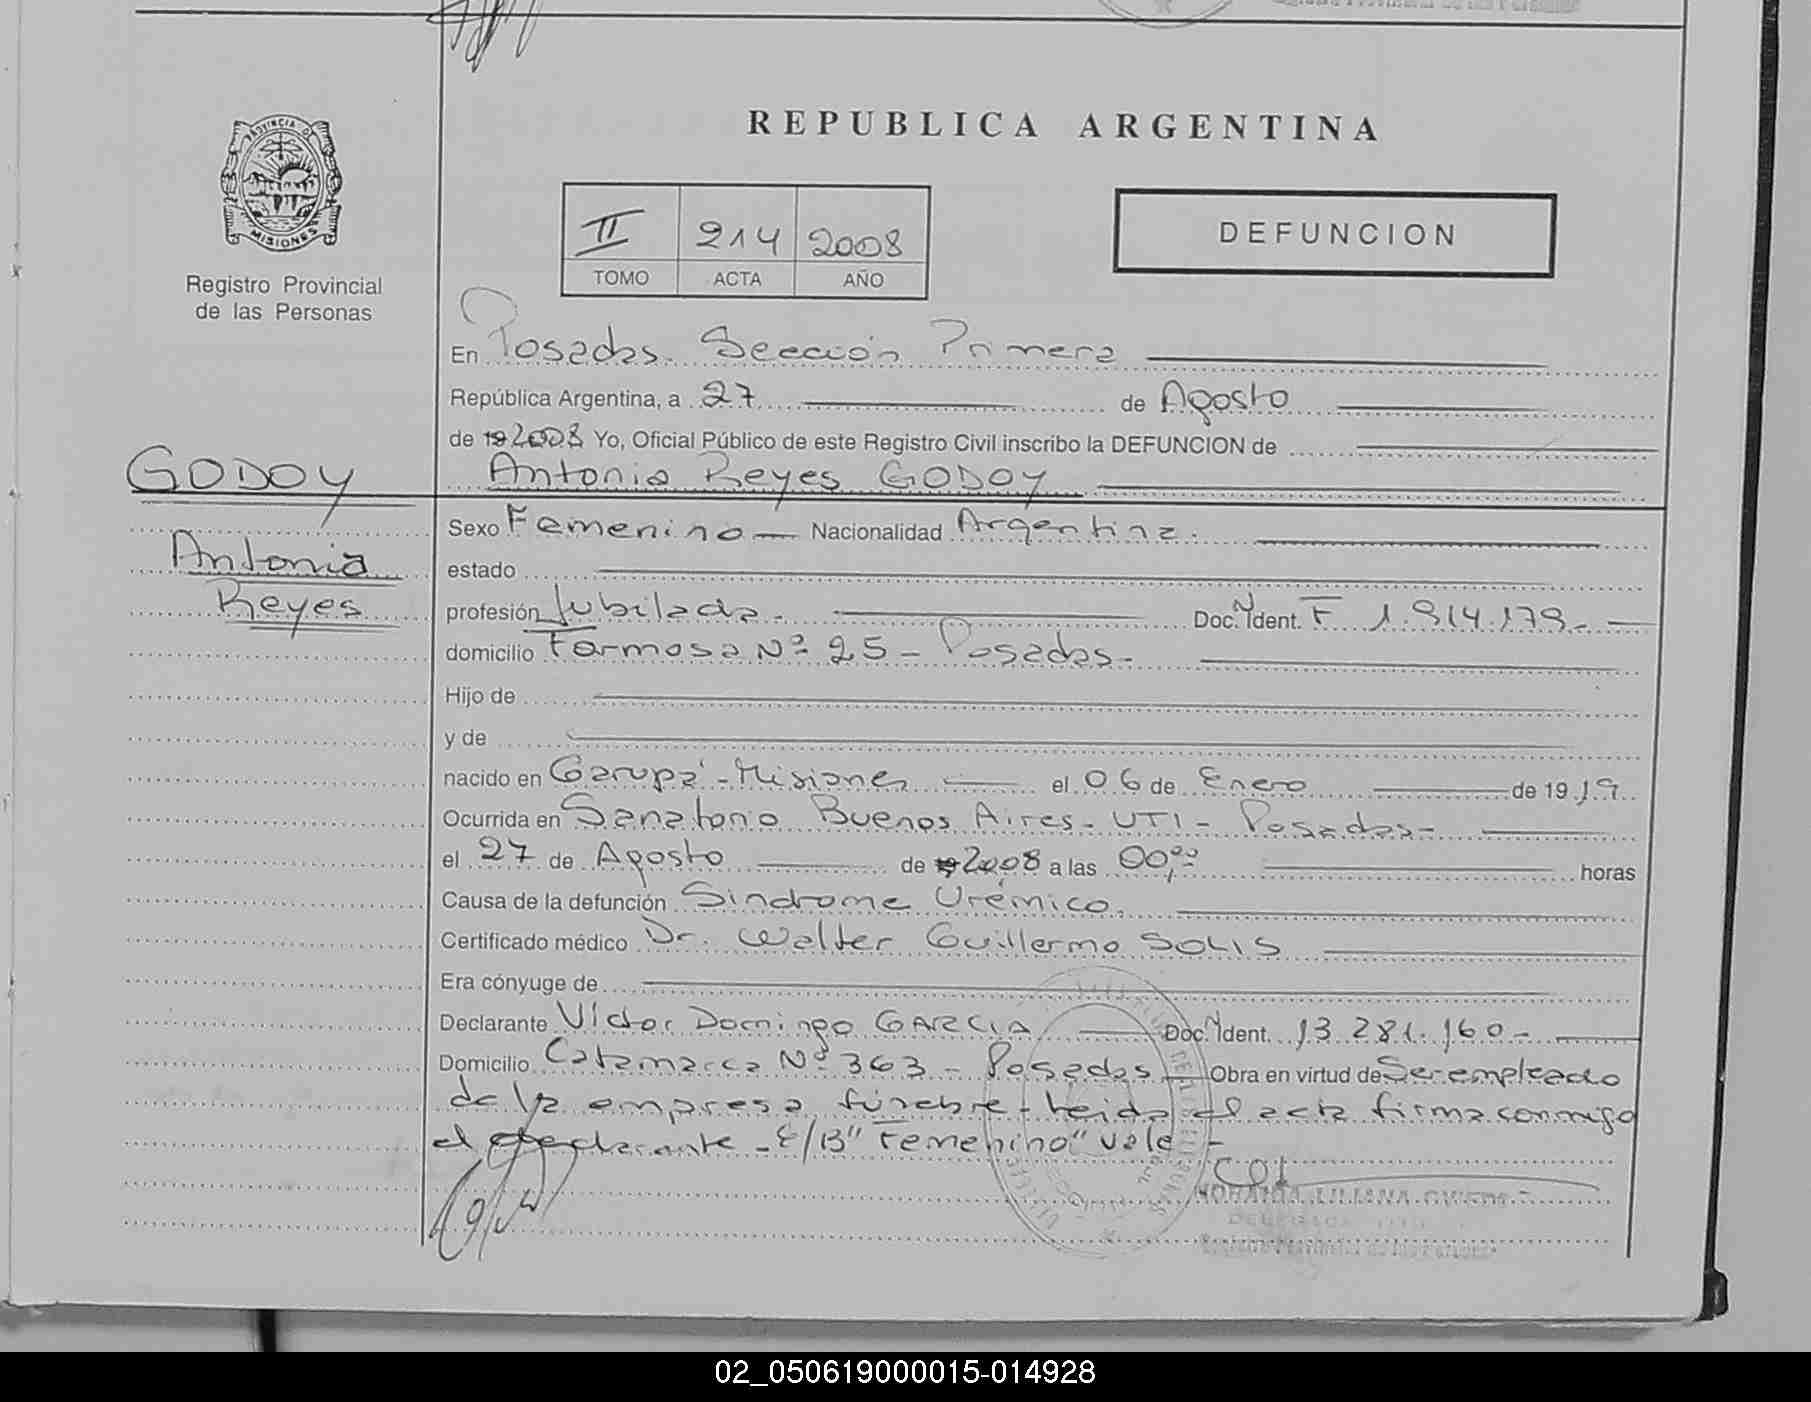 REPUBLICA ARGENTINA
PROVINCIA DE
MISIONES
Registro Provincial
de las Personas
II 214 2008
TOMO ACTA AÑO
DEFUNCION
En Posadas Sección Primera
República Argentina, a 27 de Agosto
de 19 2008 Yo, Oficial Público de este Registro Civil inscribo la DEFUNCION de
GODOY
Antonia Reyes GODOY
Antonia
Reyes
Sexo Femenino Nacionalidad Argentina.
estado
profesión Jubilada. Doc. N Ident. F 1.914.179.
domicilio Formosa Nº 25 - Posadas-
Hijo de
y de
nacido en Garupá - Misiones el 06 de Enero de 1919
Ocurrida en Sanatorio Buenos Aires - UTI - Posadas-
el 27 de Agosto de 19 2008 a las 00,00 horas
Causa de la defunción Sindrome Urémico.
Certificado médico Dr. Walter Guillermo SOLIS
Era cónyuge de
Declarante Víctor Domingo GARCIA Doc. N Ident. 13.281.160-
Domicilio Catamarca Nº 363 - Posadas Obra en virtud de Ser empleado
de la empresa fúnebre - leida el acta firma conmigo
el declarante - E/B "Femenino" vale -
LILIANA
02_050619000015-014928